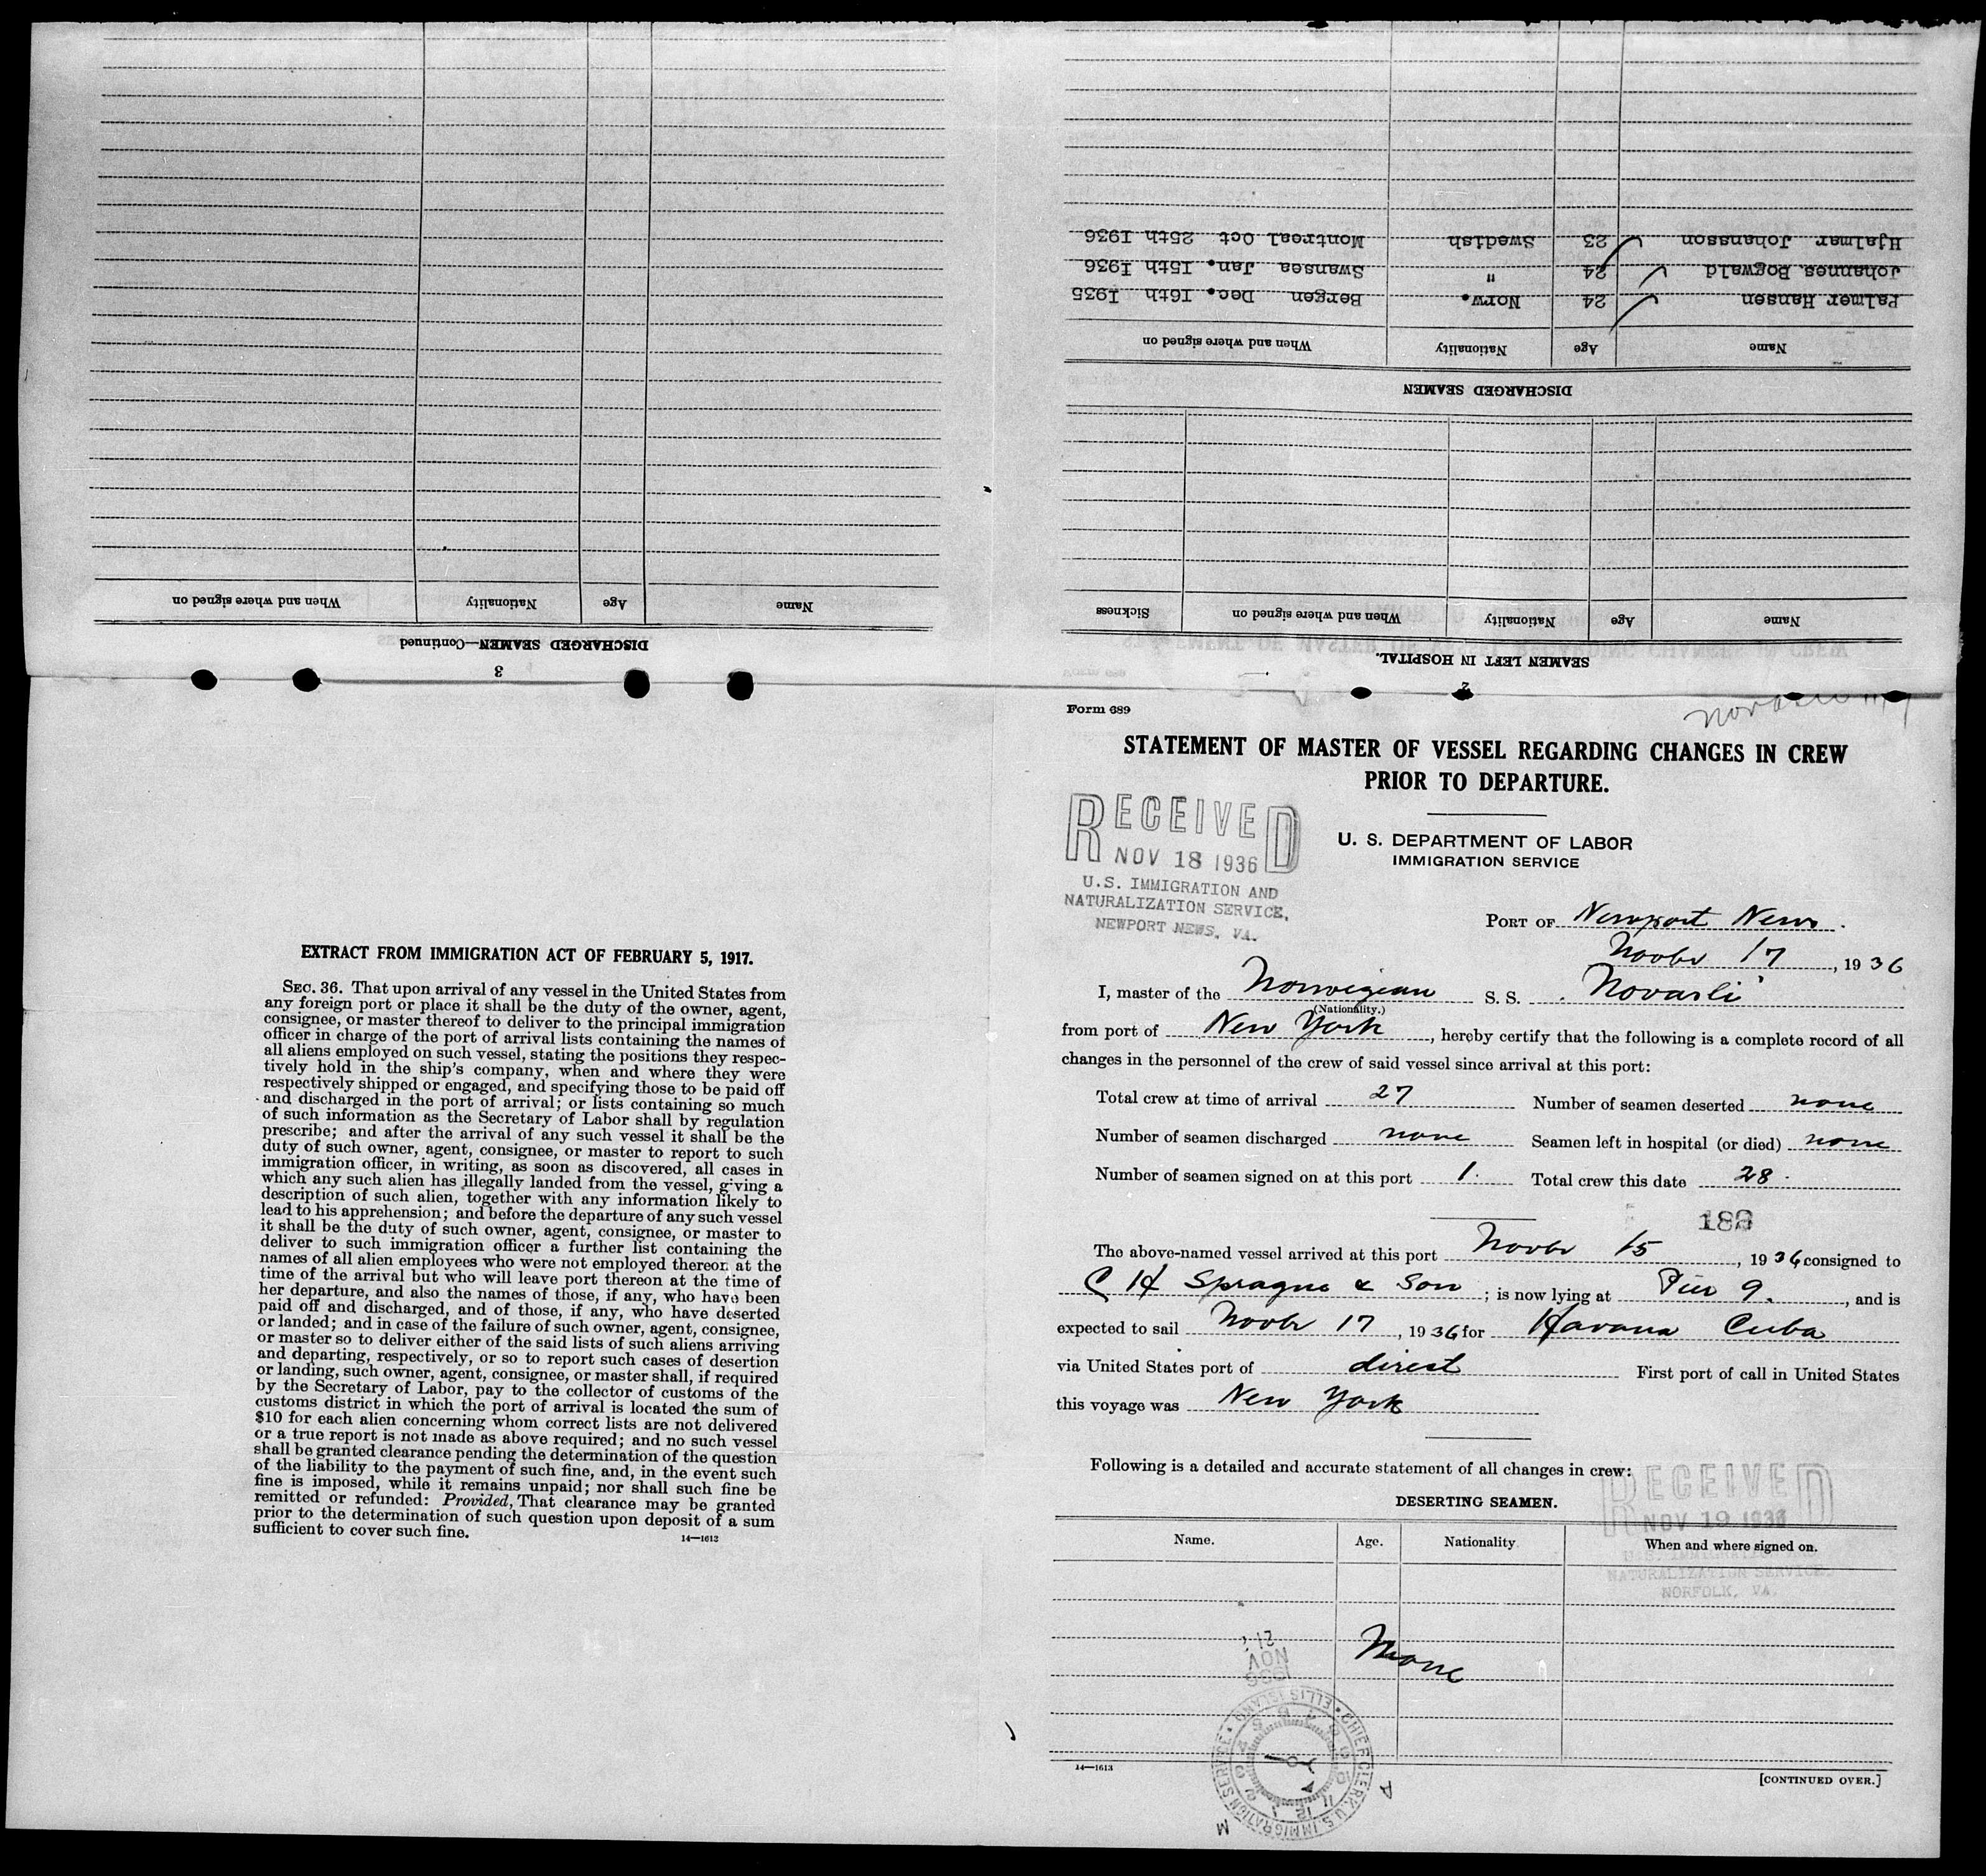 Form 689
STATEMENT OF MASTER OF VESSEL REGARDING CHANGES IN CREW
PRIOR TO DEPARTURE.
U. S. DEPARTMENT OF LABOR
IMMIGRATION SERVICE
RECEIVED
NOV 18 1936
U.S. IMMIGRATION AND
NATURALIZATION SERVICE,
NEWPORT NEWS, VA.
PORT OF Newport News.
Novbr 17, 1936
I, master of the Norwegian S. S. Novasli
(Nationality.)
from port of New York, hereby certify that the following is a complete record of all
changes in the personnel of the crew of said vessel since arrival at this port:
Total crew at time of arrival 27 Number of seamen deserted none
Number of seamen discharged none Seamen left in hospital (or died) none
Number of seamen signed on at this port 1. Total crew this date 28.
The above-named vessel arrived at this port Novbr 15, 1936 consigned to
C H Sprague & Son; is now lying at Pier 9., and is
expected to sail Novbr 17, 1936 for Havana Cuba
via United States port of direct First port of call in United States
this voyage was New York
Following is a detailed and accurate statement of all changes in crew:
RECEIVED
NOV 19 1936
NATURALIZATION SERVICE,
NORFOLK, VA.
DESERTING SEAMEN.
Name. Age. Nationality When and where signed on.
None
NOV
CHIEF CLERK U.S. IMMIGRATION SERVICE • ELLIS ISLAND •
14—1613
[CONTINUED OVER.]
2
SEAMEN LEFT IN HOSPITAL.
Name Age Nationality When and where signed on Sickness
DISCHARGED SEAMEN
Name Age Nationality When and where signed on
Palmer Hansen 24 Norw. Bergen Dec. 16th 1935
Johannes Bogwald 24 " Swansea Jan. 15th 1936
Hjalmar Johansson 23 Swedish Montreal Oct 25th 1936
3
DISCHARGED SEAMEN—Continued
Name Age Nationality When and where signed on
EXTRACT FROM IMMIGRATION ACT OF FEBRUARY 5, 1917.
SEC. 36. That upon arrival of any vessel in the United States from
any foreign port or place it shall be the duty of the owner, agent,
consignee, or master thereof to deliver to the principal immigration
officer in charge of the port of arrival lists containing the names of
all aliens employed on such vessel, stating the positions they respec-
tively hold in the ship's company, when and where they were
respectively shipped or engaged, and specifying those to be paid off
and discharged in the port of arrival; or lists containing so much
of such information as the Secretary of Labor shall by regulation
prescribe; and after the arrival of any such vessel it shall be the
duty of such owner, agent, consignee, or master to report to such
immigration officer, in writing, as soon as discovered, all cases in
which any such alien has illegally landed from the vessel, giving a
description of such alien, together with any information likely to
lead to his apprehension; and before the departure of any such vessel
it shall be the duty of such owner, agent, consignee, or master to
deliver to such immigration officer a further list containing the
names of all alien employees who were not employed thereon at the
time of the arrival but who will leave port thereon at the time of
her departure, and also the names of those, if any, who have been
paid off and discharged, and of those, if any, who have deserted
or landed; and in case of the failure of such owner, agent, consignee,
or master so to deliver either of the said lists of such aliens arriving
and departing, respectively, or so to report such cases of desertion
or landing, such owner, agent, consignee, or master shall, if required
by the Secretary of Labor, pay to the collector of customs of the
customs district in which the port of arrival is located the sum of
$10 for each alien concerning whom correct lists are not delivered
or a true report is not made as above required; and no such vessel
shall be granted clearance pending the determination of the question
of the liability to the payment of such fine, and, in the event such
fine is imposed, while it remains unpaid; nor shall such fine be
remitted or refunded: Provided, That clearance may be granted
prior to the determination of such question upon deposit of a sum
sufficient to cover such fine.
14—1613